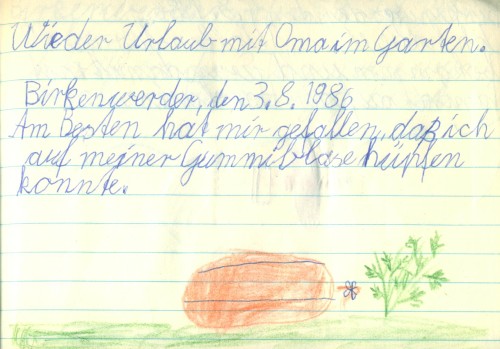 Wieder Urlaub mit Oma im Garten.
Birkenwerder, den 3.8.1986
Am Besten hat mir gefallen, daß ich
auf meiner Gummiblase hüpfen
konnte.